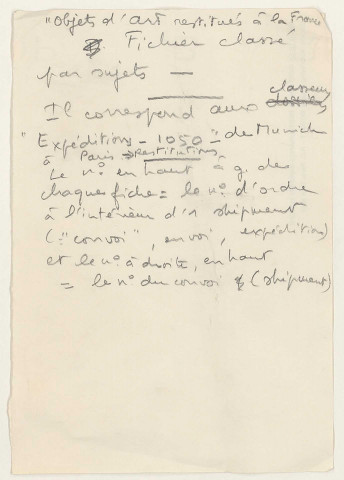 "Objets d'art restitués à la France"
Fichier classé
par sujets —
Il correspond aux classeurs
"Expéditions - 1050" de Munich
à Paris → Restitutions
Le n° en haut à g. de
chaque fiche = le n° d'ordre
à l'intérieur d'1 shipment
(= "convoi", envoi, expédition)
et le n° à droite, en haut
= le n° du convoi (shipment)